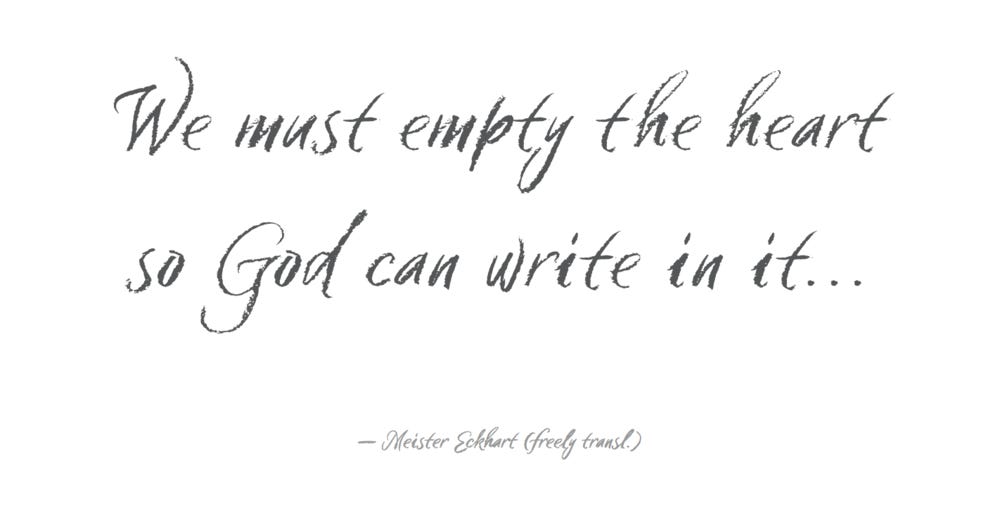 We must empty the heart
so God can write in it...
— Meister Eckhart (freely transl.)